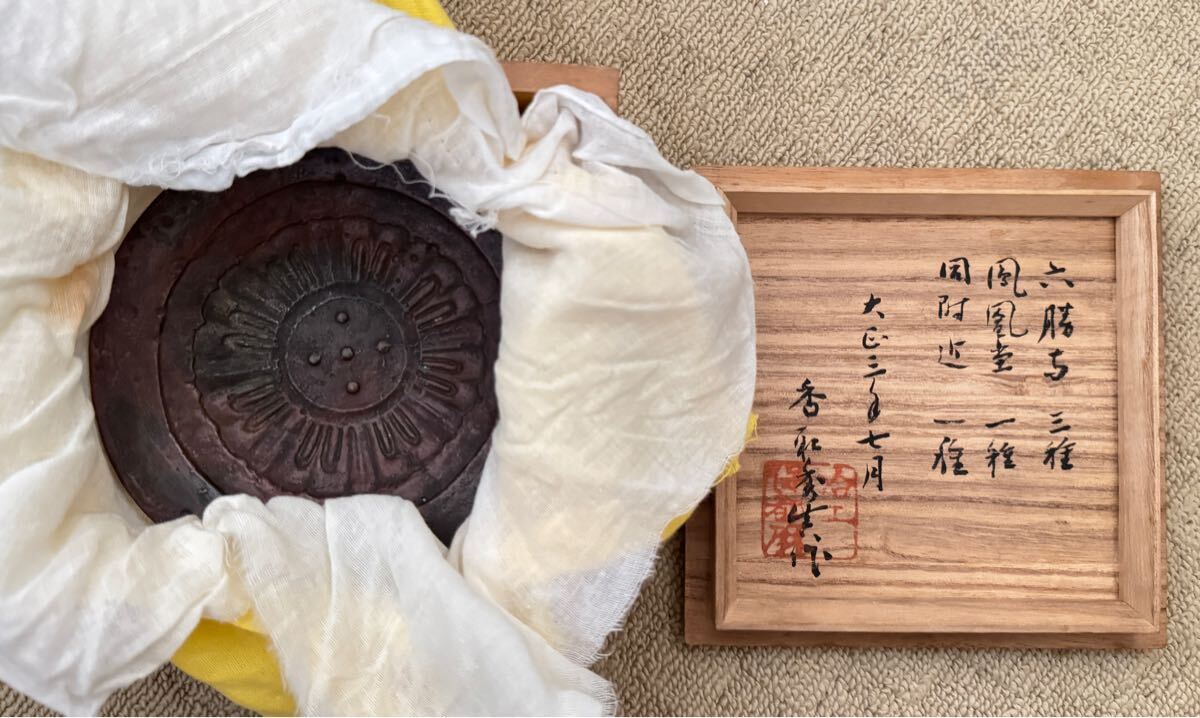 六勝寺 三種
鳳凰堂 一種
同附近 一種
大正三年七月
香取秀真作